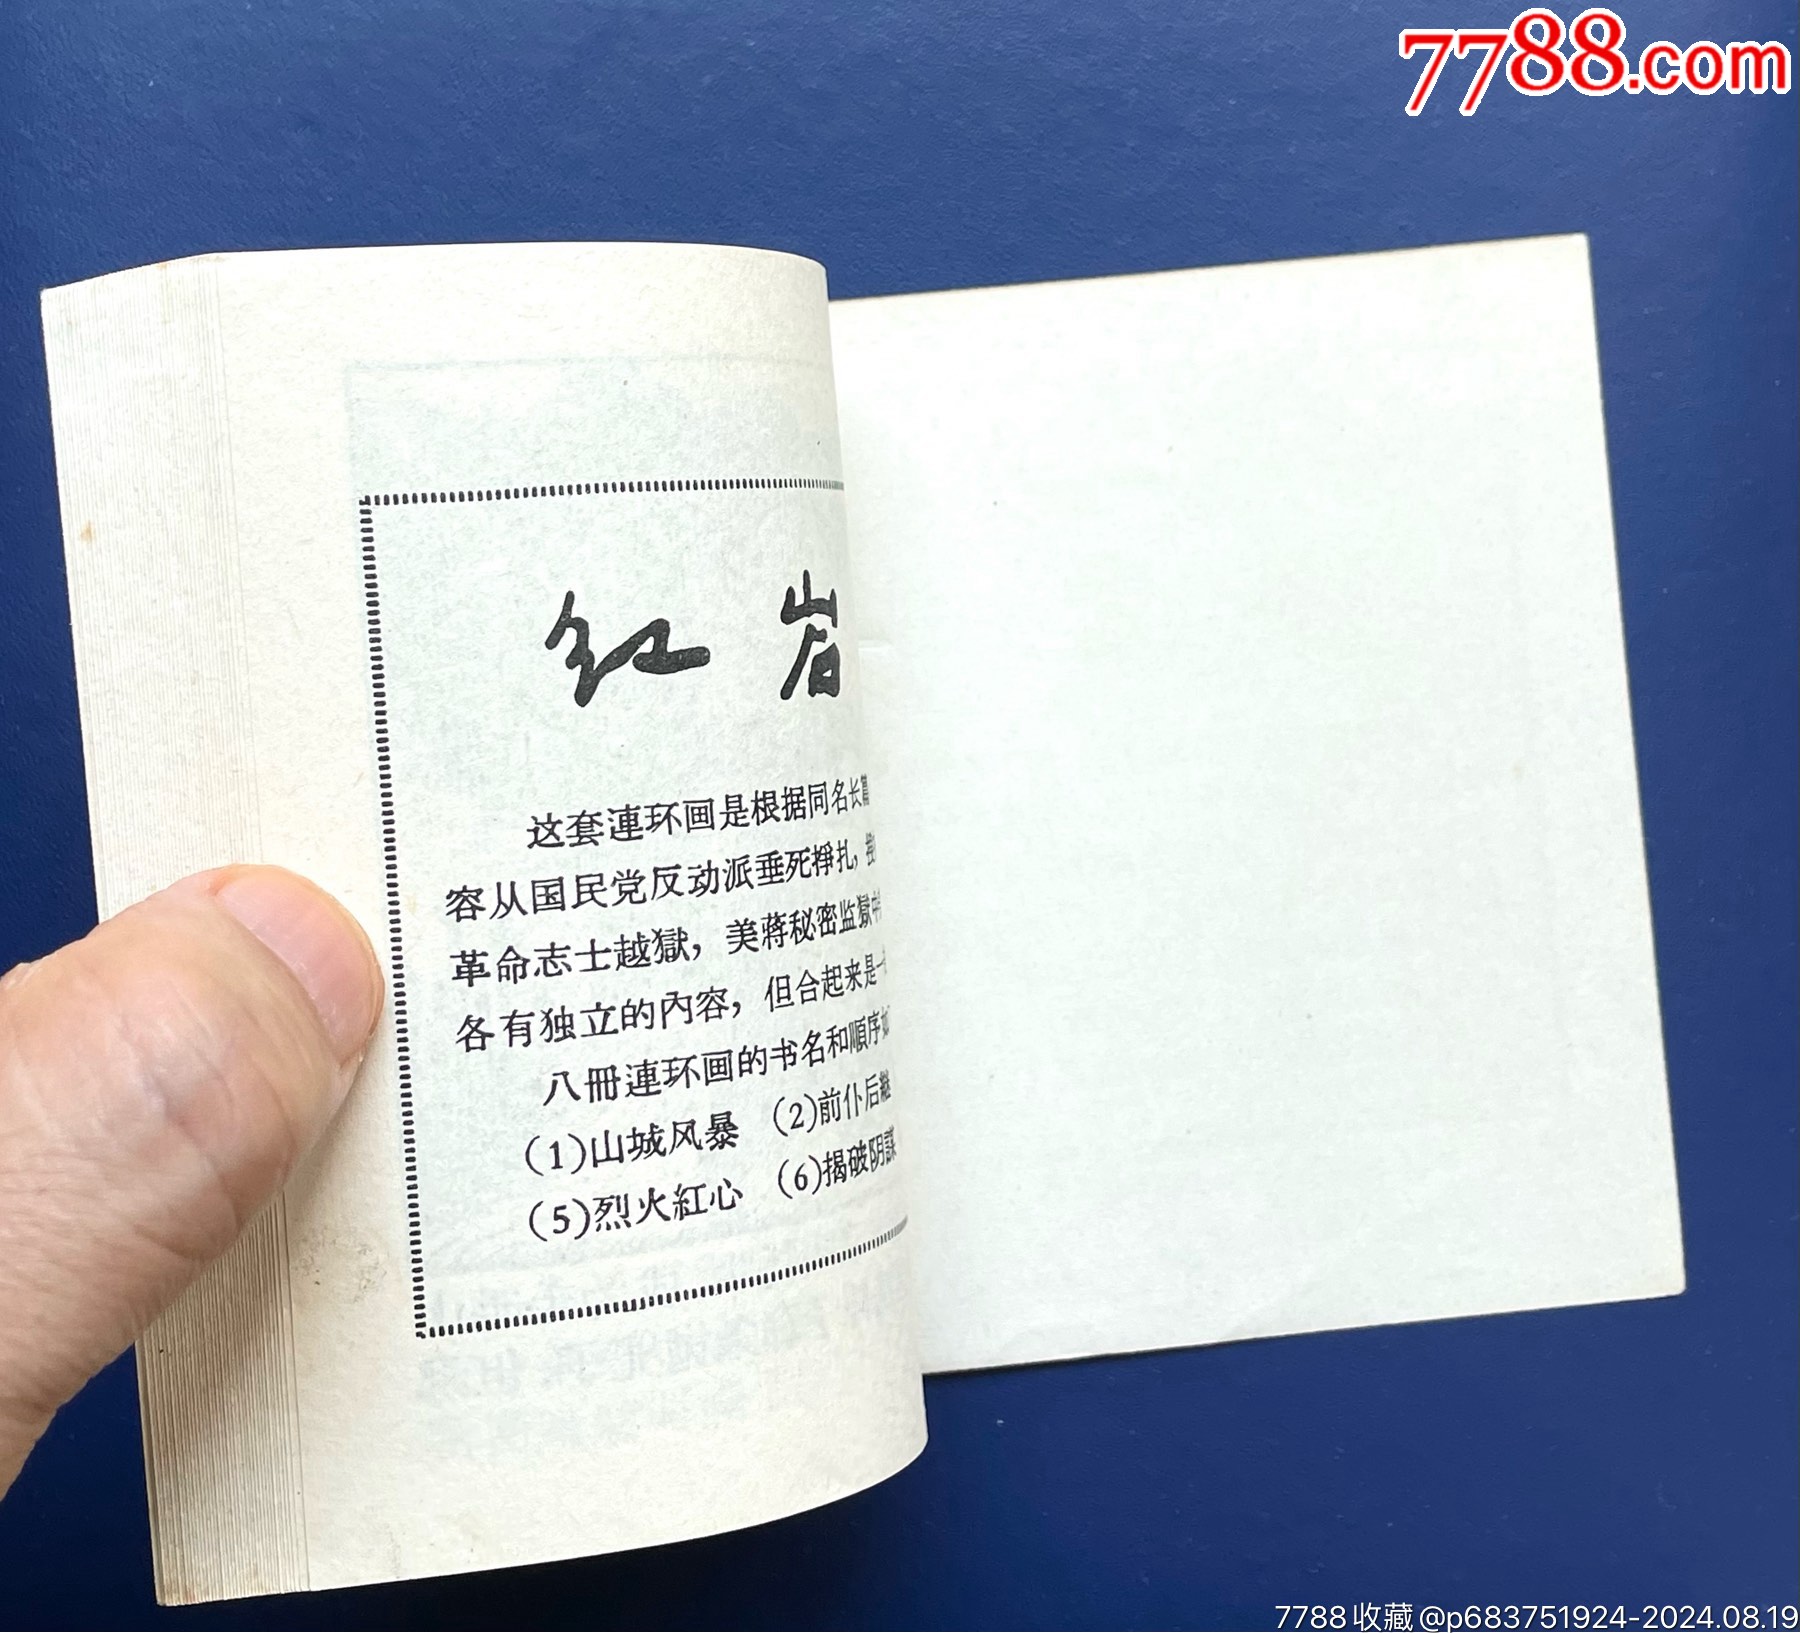 7788.com
红岩
这套連环画是根据同名长篇
容从国民党反动派垂死掙扎，
革命志士越獄，美蒋秘密监獄中
各有独立的內容，但合起来是一
八冊連环画的书名和順序如
(1)山城风暴 (2)前仆后継
(5)烈火紅心 (6)揭破阴謀
7788收藏@p683751924-2024.08.19